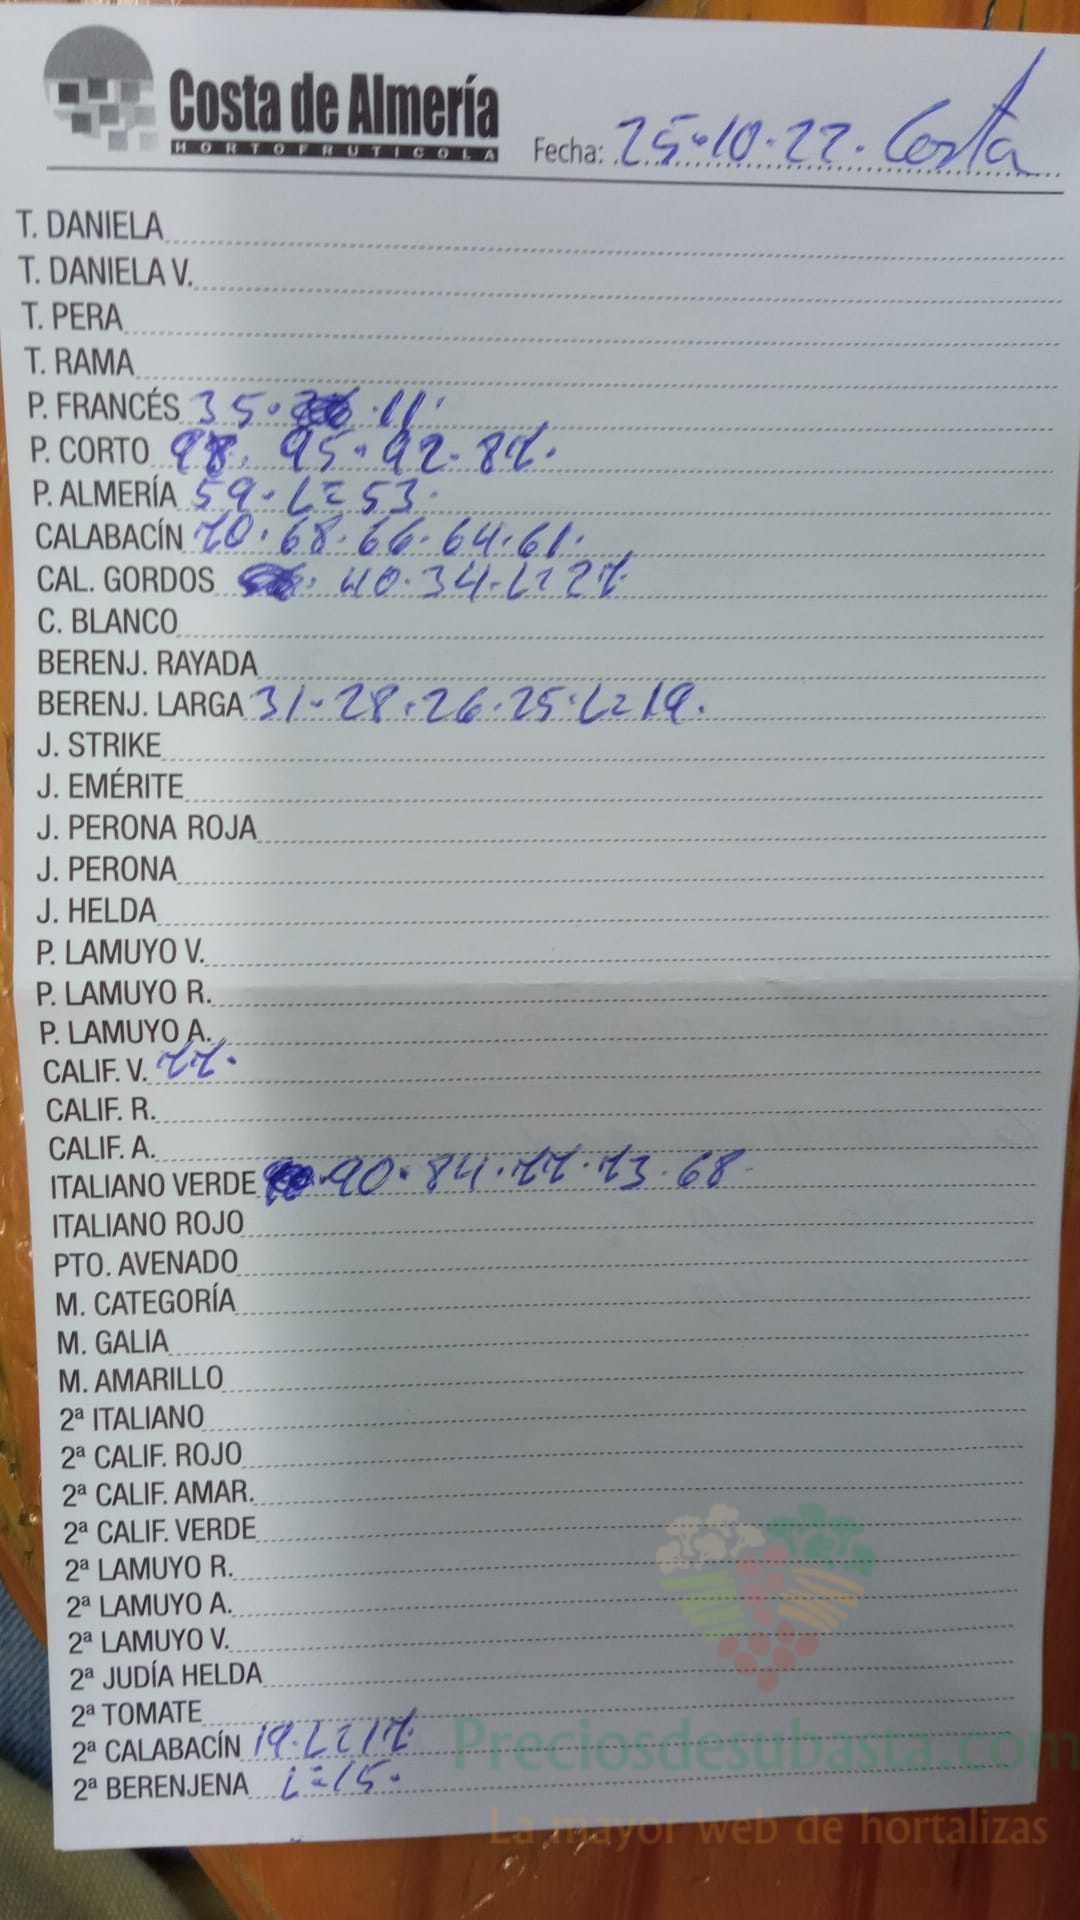 Costa de Almería
HORTOFRUTICOLA
Fecha: 25·10·22· Costa
T. DANIELA
T. DANIELA V.
T. PERA
T. RAMA
P. FRANCÉS 35· ·11·
P. CORTO 98· 95·92·87·
P. ALMERÍA 59·L=53·
CALABACÍN 70·68·66·64·61·
CAL. GORDOS 40·34·L=27·
C. BLANCO
BERENJ. RAYADA
BERENJ. LARGA 31·28·26·25·L=19·
J. STRIKE
J. EMÉRITE
J. PERONA ROJA
J. PERONA
J. HELDA
P. LAMUYO V.
P. LAMUYO R.
P. LAMUYO A.
CALIF. V. 77·
CALIF. R.
CALIF. A.
ITALIANO VERDE ·90·84·77·73·68·
ITALIANO ROJO
PTO. AVENADO
M. CATEGORÍA
M. GALIA
M. AMARILLO
2ª ITALIANO
2ª CALIF. ROJO
2ª CALIF. AMAR.
2ª CALIF. VERDE
2ª LAMUYO R.
2ª LAMUYO A.
2ª LAMUYO V.
2ª JUDÍA HELDA
2ª TOMATE
2ª CALABACÍN 19·L=17·
2ª BERENJENA L=15·
Preciosdesubasta.com
La mayor web de hortalizas